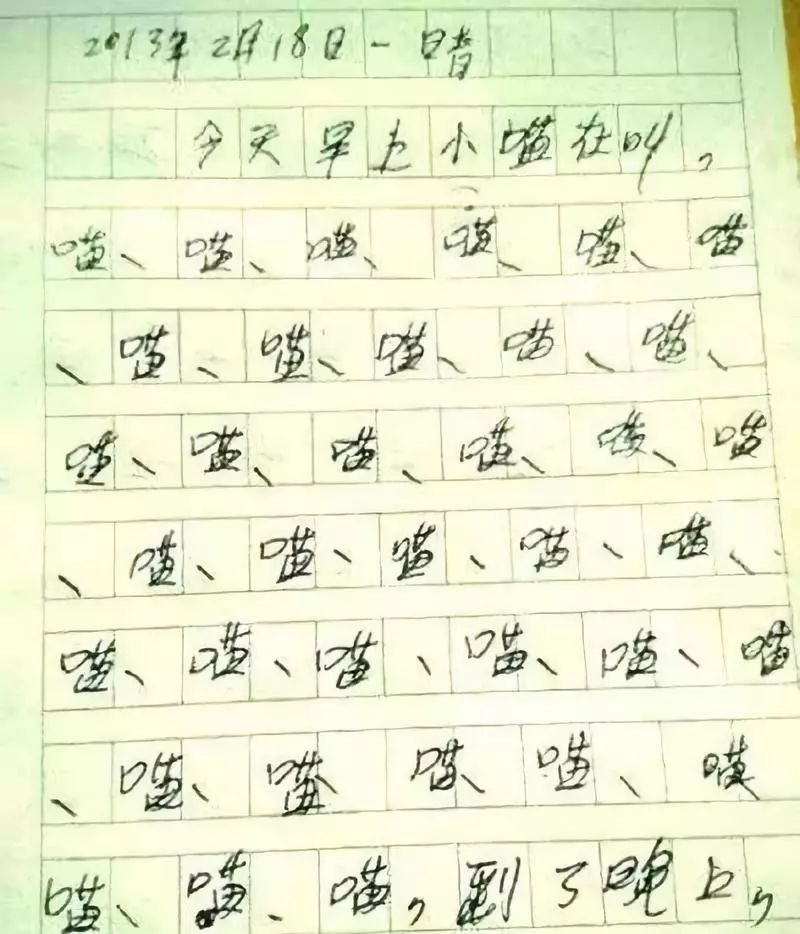 2013年2月18日一 晴
今天早上小喵在叫,
喵、喵、喵、喵、喵、喵
、喵、喵、喵、喵、喵、
喵、喵、喵、喵、喵、喵
、喵、喵、喵、喵、喵、
喵、喵、喵、喵、喵、喵
、喵、喵、喵、喵、喵
喵、喵、喵,到了晚上,